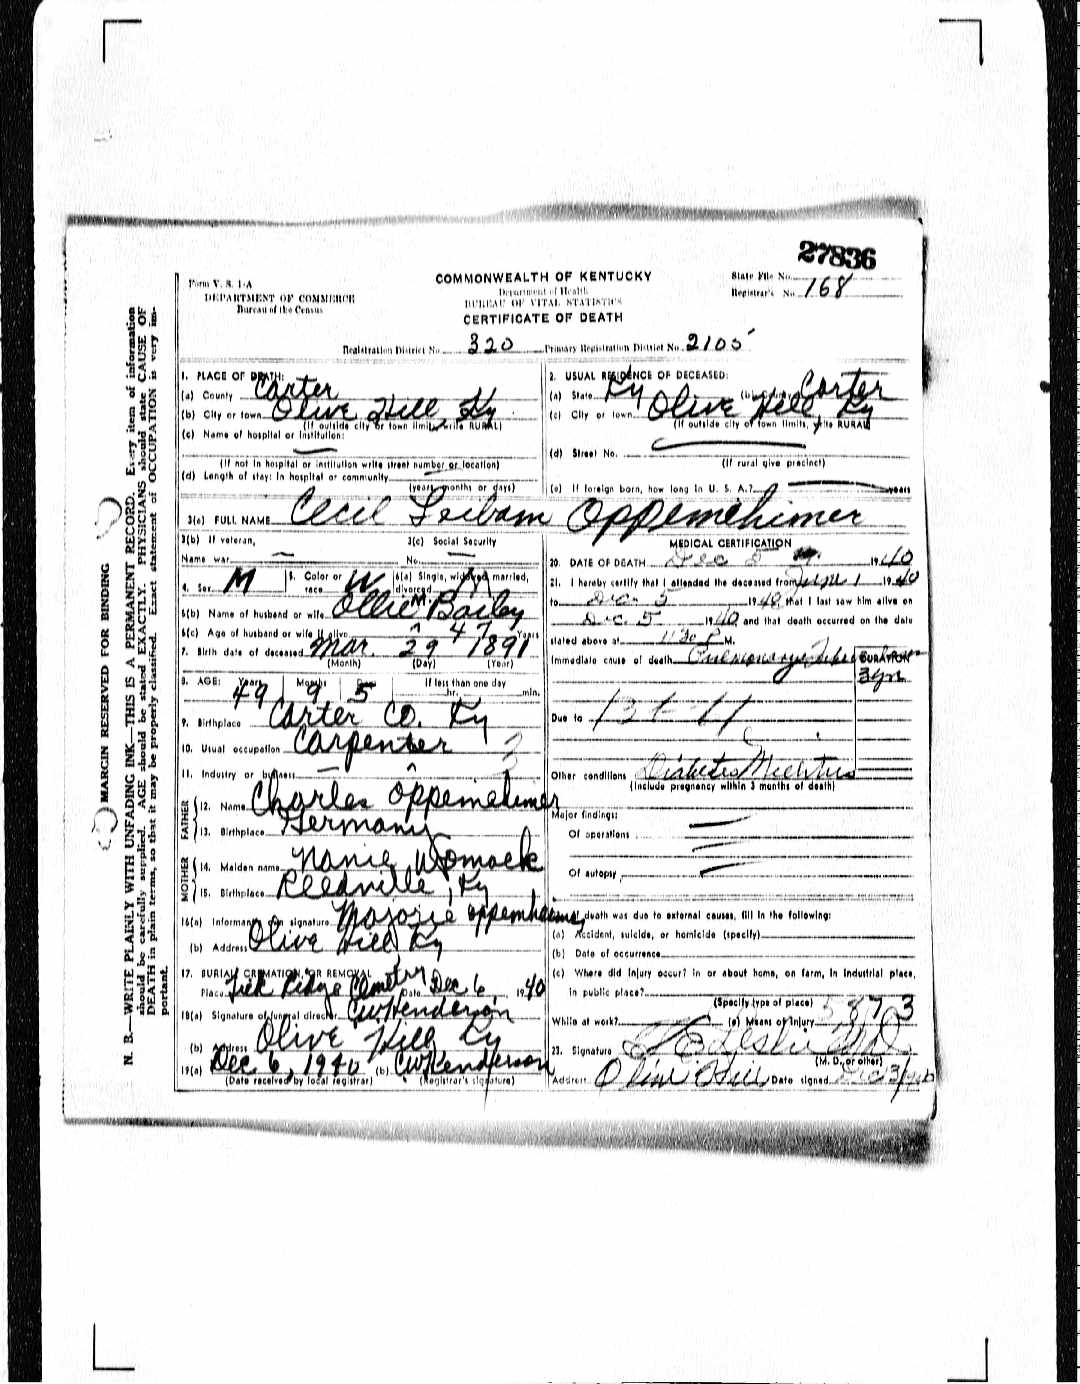 27836
Form V. S. 1-A
DEPARTMENT OF COMMERCE
Bureau of the Census
COMMONWEALTH OF KENTUCKY
Department of Health
BUREAU OF VITAL STATISTICS
CERTIFICATE OF DEATH
State File No.
Registrar's No. 168
Registration District No. 320 Primary Registration District No. 2105
1. PLACE OF DEATH:
(a) County Carter
(b) City or town Olive Hill Ky
(If outside city or town limits, write RURAL)
(c) Name of hospital or institution:
(If not in hospital or institution write street number or location)
(d) Length of stay: In hospital or community
(years, months or days)
2. USUAL RESIDENCE OF DECEASED:
(a) State Ky (b) County Carter
(c) City or town Olive Hill, Ky
(If outside city of town limits, write RURAL)
(d) Street No.
(If rural give precinct)
(e) If foreign born, how long in U. S. A.? years
3(a) FULL NAME Cecil Oppemehimer
3(b) If veteran,
Name war
3(c) Social Security
No.
4. Sex M 5. Color or race W 6(a) Single, widowed, married, divorced M
6(b) Name of husband or wife Ollie M. Bailey
6(c) Age of husband or wife if alive 47 Years
7. Birth date of deceased Mar. 29 1891
(Month) (Day) (Year)
8. AGE: Years 49 Months 9 Days 5 If less than one day
hr. min.
9. Birthplace Carter Co. Ky
10. Usual occupation Carpenter
11. Industry or business
FATHER
12. Name Charles Oppemehimer
13. Birthplace Germany
MOTHER
14. Maiden name Nanie Womack
15. Birthplace Reedville, Ky
16(a) Informant's own signature Marjorie Oppemheimer
(b) Address Olive Hill Ky
17. BURIAL CREMATION, OR REMOVAL
Place Tick Ridge Cemetry Date Dec 6, 1940
18(a) Signature of funeral director C.W. Henderson
(b) Address Olive Hill Ky
19(a) Dec 6, 1940 (b) C.W. Henderson
(Date received by local registrar) (Registrar's signature)
MEDICAL CERTIFICATION
20. DATE OF DEATH Dec 5 1940
21. I hereby certify that I attended the deceased from June 1 1940
to Dec. 5 1940, that I last saw him alive on
Dec. 5 1940 and that death occurred on the date
stated above at 11:30 P M.
Immediate cause of death Pulmonary
DURATION
3 yrs
Due to
Other conditions Diabetes
(Include pregnancy within 3 months of death)
Major findings:
Of operations
Of autopsy
death was due to external causes, fill in the following:
(a) Accident, suicide, or homicide (specify)
(b) Date of occurrence
(c) Where did injury occur? in or about home, on farm, in industrial place,
in public place?
(Specify type of place)
While at work? (e) Means of injury
23. Signature Leslie MD
(M. D. or other)
Address Olive Hill Date signed
MARGIN RESERVED FOR BINDING
N. B.—WRITE PLAINLY WITH UNFADING INK—THIS IS A PERMANENT RECORD. Every item of information
should be carefully supplied. AGE should be stated EXACTLY. PHYSICIANS should state CAUSE OF
DEATH in plain terms, so that it may be properly classified. Exact statement of OCCUPATION is very im-
portant.